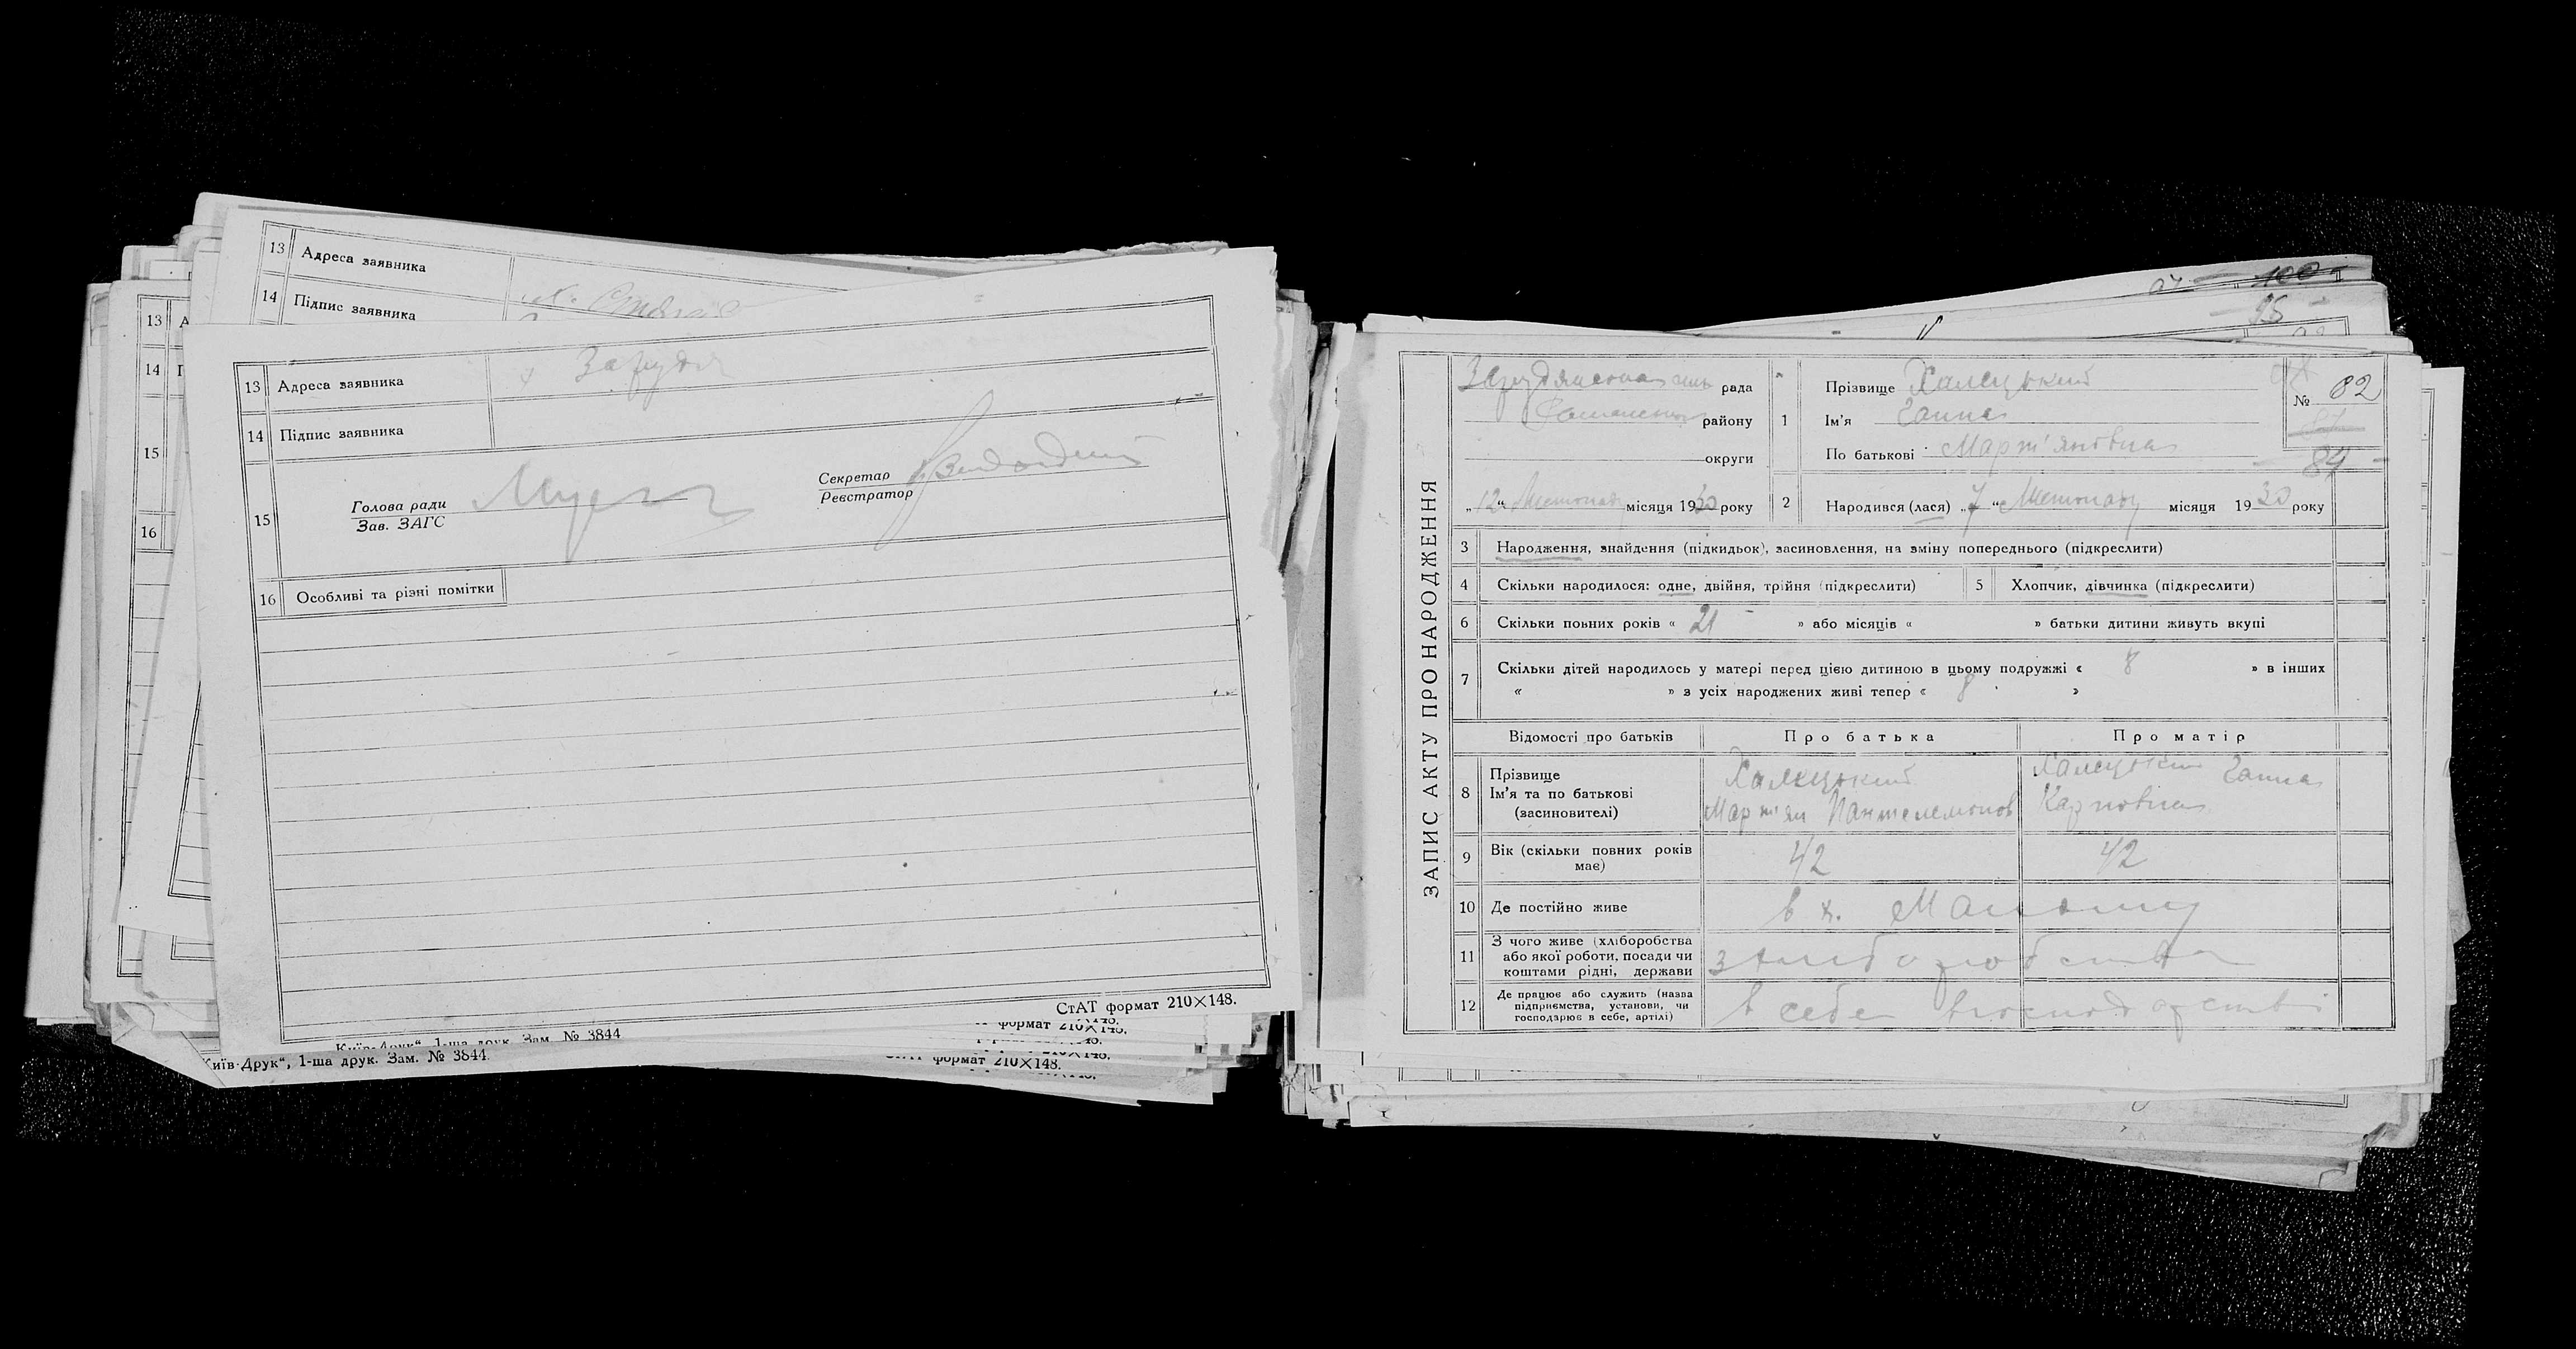 13 Адреса заявника
14 Підпис заявника
13
14
15
16
13 Адреса заявника Заруддя
14 Підпис заявника
15 Голова ради
Зав. ЗАГС
Секретар
Реєстратор
16 Особливі та різні помітки
СтАТ формат 210×148.
формат 210×148.
Київ-Друк“, 1-ша друк. Зам. № 3844
иїв-Друк“, 1-ша друк. Зам. № 3844.
формат 210×148.
95
ЗАПИС АКТУ ПРО НАРОДЖЕННЯ
рада
району
округи
„12“ Листопад місяця 1930 року
1 Прізвище Халецький
Ім’я Ганна
По батькові Март'янівна
№ 82
84
2 Народився (лася) „7“ Листопаду місяця 1930 року
3 Народження, знайдення (підкидьок), засиновлення, на зміну попереднього (підкреслити)
4 Скільки народилося: одне, двійня, трійня (підкреслити)
5 Хлопчик, дівчинка (підкреслити)
6 Скільки повних років « 21 » або місяців « » батьки дитини живуть вкупі
7 Скільки дітей народилось у матері перед цією дитиною в цьому подружжі « 8 » в інших
« » з усіх народжених живі тепер « 8 »
Відомості про батьків Про батька Про матір
8 Прізвище
Ім’я та по батькові
(засиновителі)
Халецький
Март'ян Пантелемонов
Халецький Ганна
Карповна
9 Вік (скільки повних років
має)
42 42
10 Де постійно живе в х.
11 З чого живе (хліборобства
або якої роботи, посади чи
коштами рідні, держави
з хліборобства
12 Де працює або служить (назва
підприємства, установи, чи
господарює в себе, артілі)
в себе в господарстві